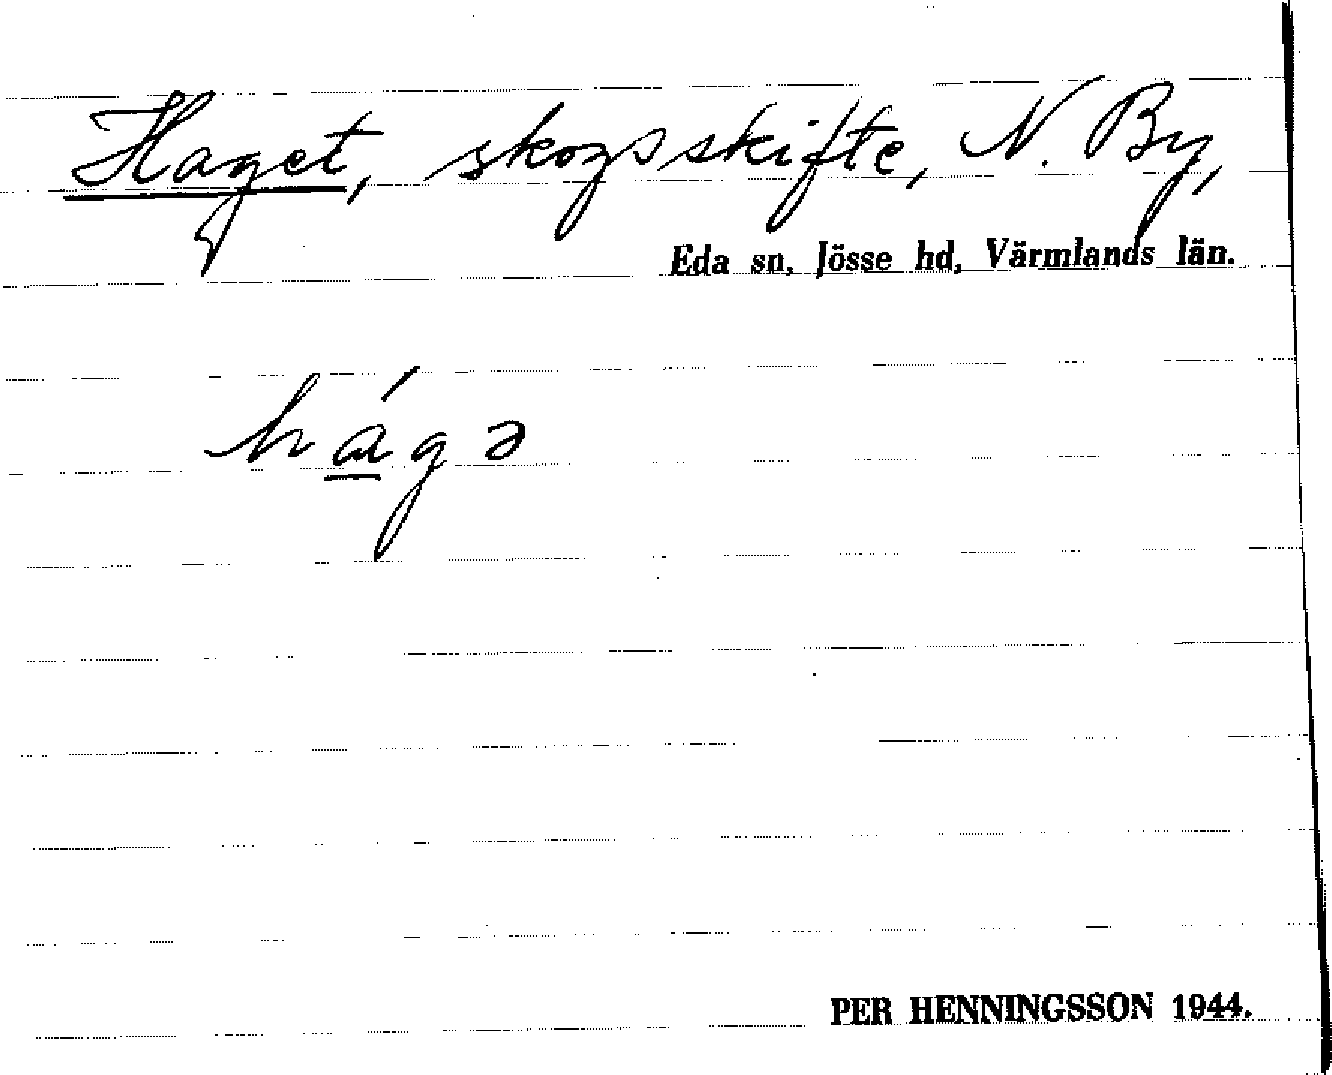 Haget, skogsskifte, N. By,
Eda sn, Jösse hd, Värmlands län.
há̱gə
PER HENNINGSSON 1944.